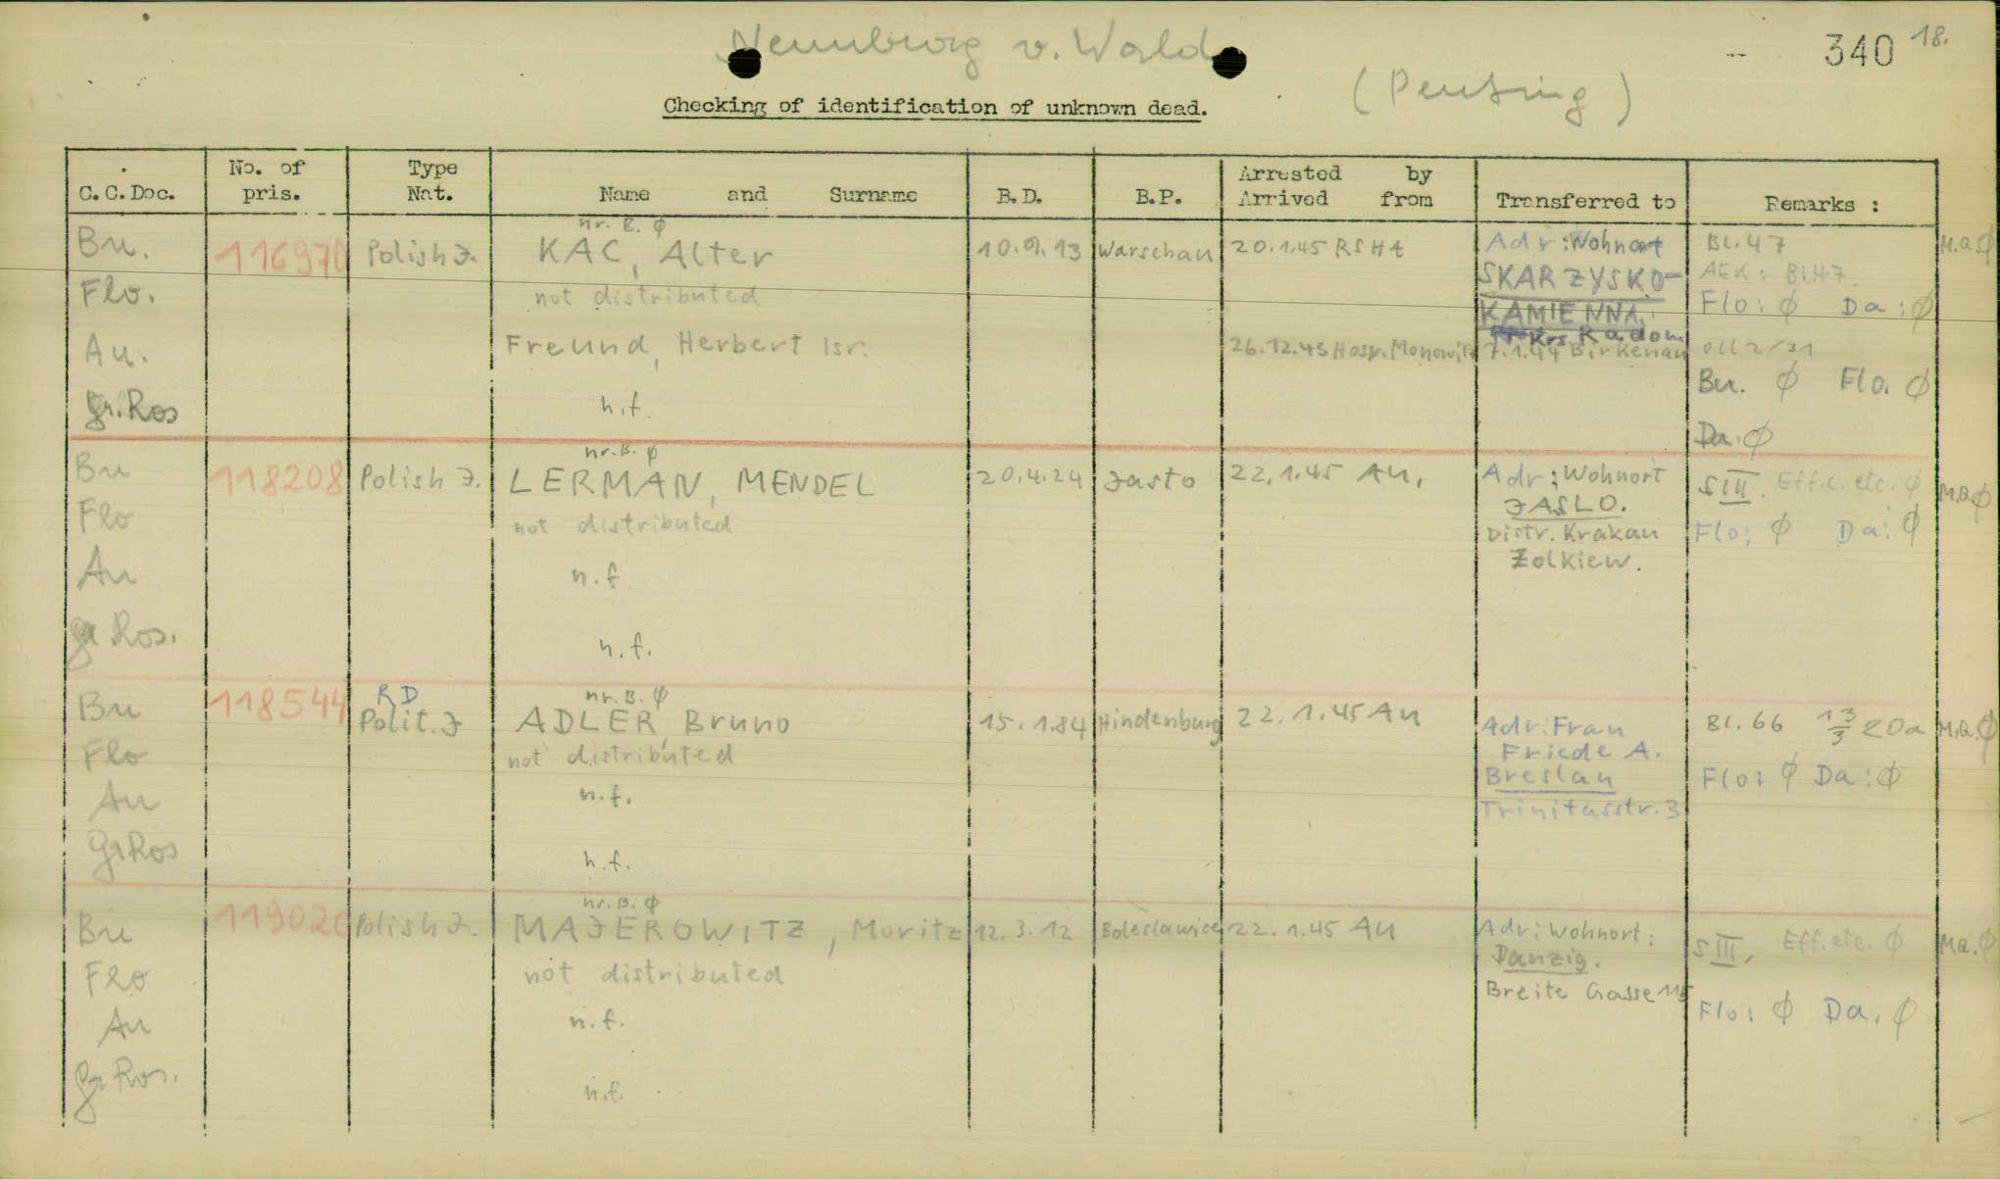 Neunburg v. Wald
340 18.
(Penting)
Checking of identification of unknown dead.
C.C.Doc. No. of pris. Type Nat. Name and Surname B.D. B.P. Arrested by Arrived from Transferred to Remarks :
nr. B. ø
Bu. 116970 Polish J. KAC, Alter 10.9.13 Warschau 20.1.45 RSHA Adr: Wohnort Bl. 47 M.a. ø
Flo. not distributed SKARZYSKO- AEK: Bl.47.
KAMIENNA. Flo: ø Da: ø
Krs Radom
Au. Freund, Herbert Isr. 26.12.43 Hosp. Monowitz 7.1.44 Birkenau OCC 2/31
Bu. ø Flo. ø
gr. Ros n.f.
Da. ø
nr. B. ø
Bu 118208 Polish J. LERMAN, MENDEL 20.4.24 Jasto 22.1.45 Au. Adr: Wohnort S III. Eff.c. etc. ø M.a. ø
JASLO.
Flo not distributed Distr. Krakau Flo: ø Da: ø
Au n.f. Żolkiew.
gr Ros. n.f.
nr. B. ø
Bu 118544 RD Polit. J ADLER, Bruno 15.1.84 Hindenburg 22.1.45 Au Adr: Frau Bl. 66 13/3 20a M.a. ø
Flo not distributed Friede A.
Breslau Flo: ø Da: ø
Au n.f. Trinitasstr. 3
Gr Ros n.f.
nr. B. ø
Bu 119020 Polish J. MAJEROWITZ, Moritz 12.3.12 Boleslawice 22.1.45 Au Adr: Wohnort: S III, Eff. etc. ø M.a. ø
Danzig.
Flo not distributed Breite Gasse 115
Au n.f. Flo: ø Da. ø
gr Ros. n.f.